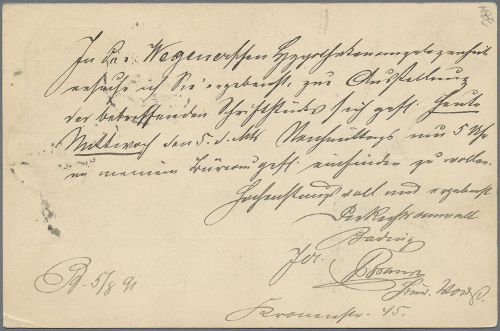 In der Wegenerschen Hypothekenangelegenheit
ersuche ich Sie ergebenst, zur Ausstellung
der betreffenden Schriftstücke sich gefl. heute
Mittwoch den 5. d. Mts. Nachmittags um 5 Uhr
in meinem Büreau gefl. einfinden zu wollen.
Hochachtungsvoll und ergebenst
Der Rechtsanwalt
B. 5/8 91
Kronenstr. 45.